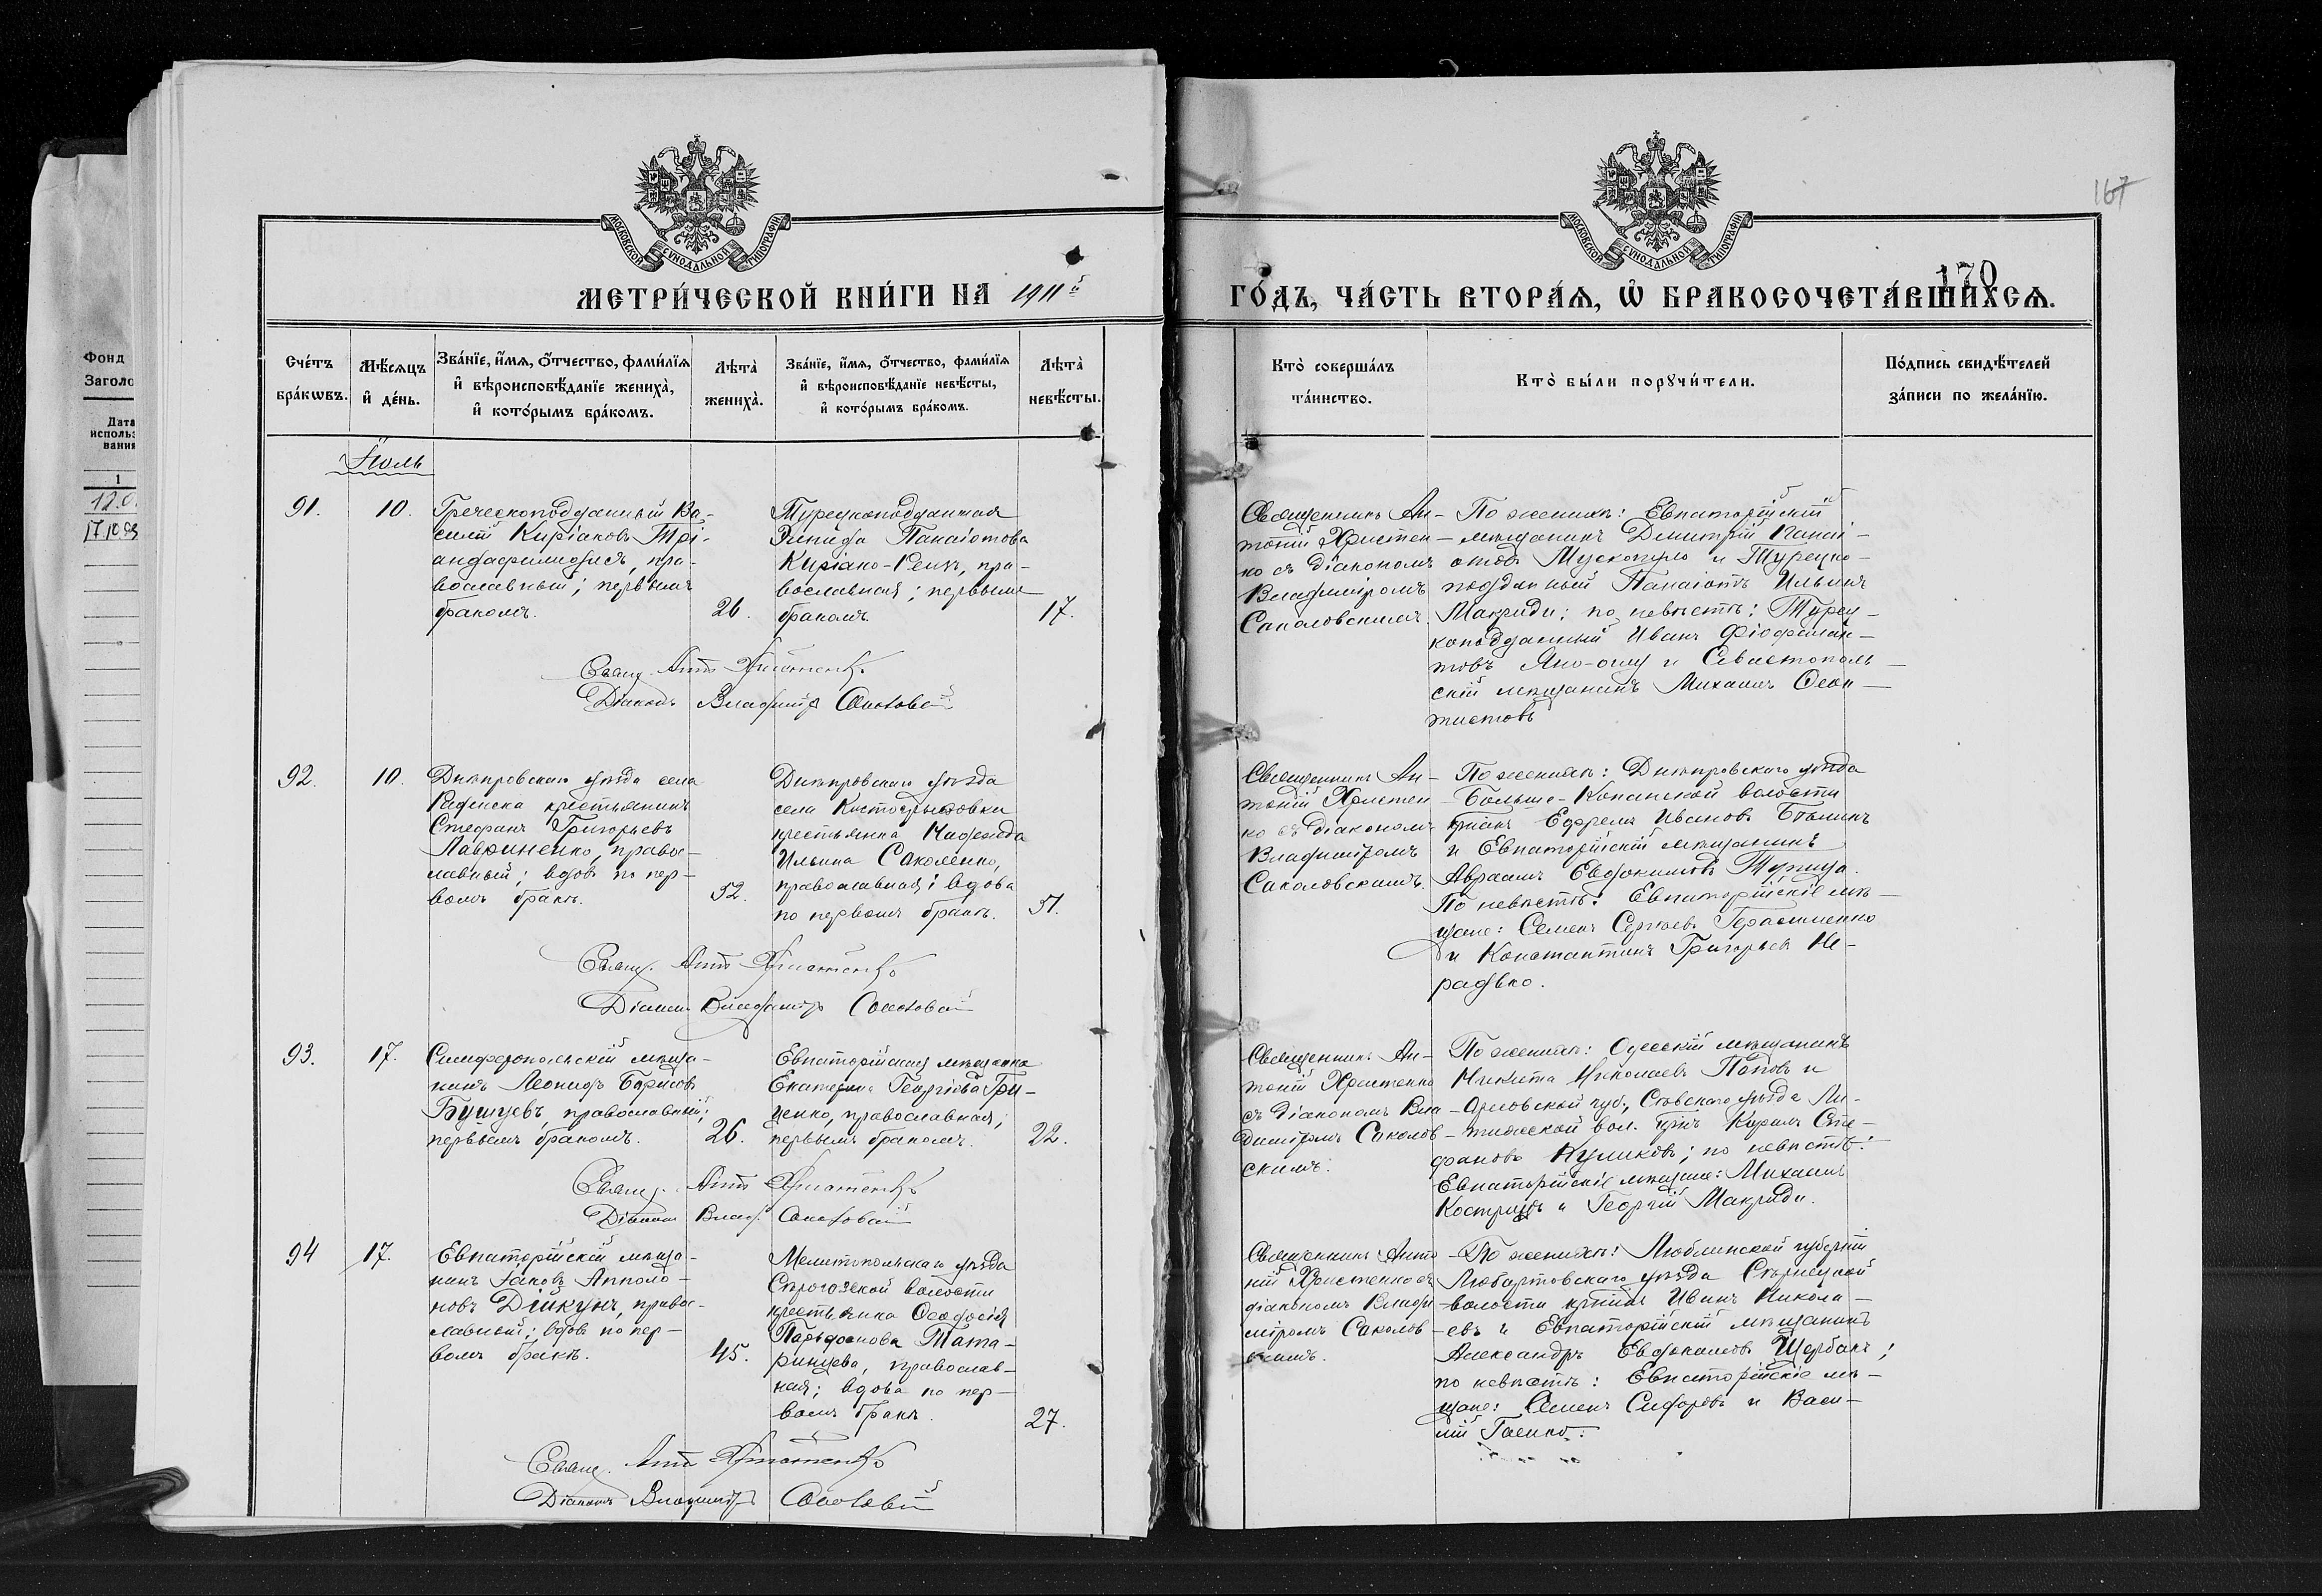 167
МОСКОВСКОЙ СѴНОДАЛЬНОЙ ТИПОГРАФІИ
МОСКОВСКОЙ СѴНОДАЛЬНОЙ ТИПОГРАФІИ
МЕТРИ́ЧЕСКОЙ КНИ́ГИ НА 1911й
170
ГО́ДЪ, ЧА́СТЬ ВТОРА́Ѧ, Ѽ БРАКОСОЧЕТА́ВШИХСѦ.
Фонд
Заголо
Дата
использ
вания
1
12.0
17.10.
Сче́тъ
бра́кѡвъ.
Мѣ́сяцъ
и҆ де́нь.
Зва́нїе, и҆́мѧ, ѻ҆́тчество, фами́лїѧ
и҆ вѣроисповѣ́данїе жениха̀,
и҆ кото́рымъ бра́комъ.
Лѣта̀
жениха̀.
Зва́нїе, и҆́мѧ, ѻ҆́тчество, фами́лїѧ
и҆ вѣроисповѣ́данїе невѣ́сты,
и҆ кото́рымъ бра́комъ.
Лѣта̀
невѣ́сты.
Кто̀ соверша́лъ
та́инство.
Кто̀ бы́ли порꙋчи́тели.
По́дпись свидѣ́телей
за́писи по жела́нїю.
Іюль
91.
10.
Греческоподданный Ва-
силій Киріаковъ Трі-
андафилидисъ, пра-
вославный; первымъ
бракомъ.
26.
Турецкоподданная
Панаіотова
Киріако-, пра-
вославная; первымъ
бракомъ.
17.
Священникъ Ан-
тоній Христен-
ко съ діакономъ
Владиміромъ
Соколовскимъ.
По женихѣ: Евпаторійскій
мѣщанинъ Димитрій Панаі-
отовъ Мускопуло и Турецко-
подданный Панаіотъ Ильинъ
Макриди; по невѣстѣ: Турец-
коподданный Иванъ
товъ и Севастополь-
скій мѣщанинъ Михаилъ Ѳеок-
тистовъ
Свящ. Антоній Христенко
Діаконъ Владиміръ Соколовскій
92.
10.
Днѣпровскаго уѣзда села
крестьянинъ
Стефанъ Григорьевъ
Лавриненко, правос-
лавный; вдовъ по пер-
вомъ бракѣ.
52.
Днѣпровскаго уѣзда
села Костогрызовки
крестьянка Надежда
Ильина Соколенко,
православная; вдова
по первомъ бракѣ.
51.
Священникъ Ан-
тоній Христен-
ко съ діакономъ
Владиміромъ
Соколовскимъ.
По женихѣ: Днѣпровскаго уѣзда
Больше-Копанской волости
Ефремъ Ивановъ
и Евпаторійскій мѣщанинъ
Авраамъ Евдокимовъ
По невѣстѣ: Евпаторійскіе мѣ-
щане: Семенъ Сергѣевъ Герасименко
и Константинъ Григорьевъ Не-
радько.
Свящ. Антоній Христенко
Діаконъ Владиміръ Соколовскій
93.
17.
Симферопольскій мѣща-
нинъ Леонидъ Борисовъ
Бушуевъ, православный;
первымъ бракомъ.
26.
Евпаторійская мѣщанка
Екатерина Георгіева Гри-
ценко, православная;
первымъ бракомъ.
22.
Священникъ Ан-
тоній Христенко
съ діакономъ Вла-
диміромъ Соколов-
скимъ.
По женихѣ: Одесскій мѣщанинъ
Никита Николаевъ Поповъ и
Орловской губ., Сѣвскаго уѣзда Ли-
тижской вол. Кириллъ Сте-
фановъ Куликовъ; по невѣстѣ:
Евпаторійскіе мѣщане: Михаилъ
и Георгій Макриди.
Свящ. Антоній Христенко
Діаконъ Влад. Соколовскій
94
17.
Евпаторійскій мѣща-
нинъ Іаковъ Апполо-
новъ Дійкунъ, правос-
лавный; вдовъ по пер-
вомъ бракѣ.
45.
Мелитопольскаго уѣзда
Сѣрогозской волости
крестьянка Ѳеодосія
Парѳенова Тата-
ринцева, православ-
ная; вдова по пер-
вомъ бракѣ.
27.
Священникъ Анто-
ній Христенко съ
діакономъ Влади-
міромъ Соколов-
скимъ.
По женихѣ: Люблинской губерніи
Любартовскаго уѣзда
волости Иванъ Никола-
евъ и Евпаторійскій мѣщанинъ
Александръ Евдокимовъ Щербакъ;
по невѣстѣ: Евпаторійскіе мѣ-
щане: Семенъ Сидоровъ и Васи-
лій Гаенко.
Свящ. Антоній Христенко
Діаконъ Владиміръ Соколовскій